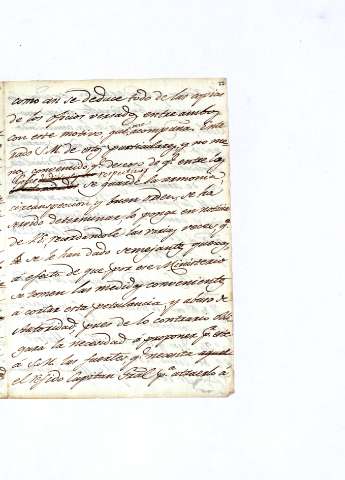 como asi se deduce todo de las copias
de los oficios versados entre ambos
con este motivo, que acompaña. Ente
rado S.M. de estos particulares, y no me
nos convencido qe. deseoso de qe. entre las
se guarde la armonia,
circunspeccion, y buen orden, se ha
servido determinar lo ponga en noticia
de V.E. recordandole las varias veces qe.
se le han dado semejantes quexas,
á efecto de que por ese Ministerio
se tomen las medidas convenientes
á cortar esta petulancia, y abuso de
autoridad, pues de lo contrario obli
gará la necesidad á proponer pa. este
á S.M. las fuertes qe. necesita
el Rfdo Capitan Gral pa.